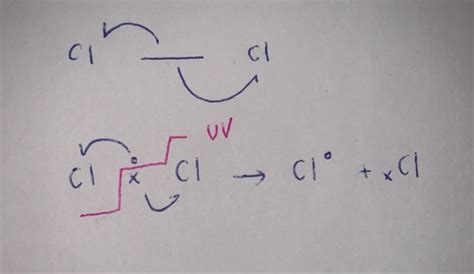 Cl — Cl
UV
Cl ° x Cl → Cl° + xCl